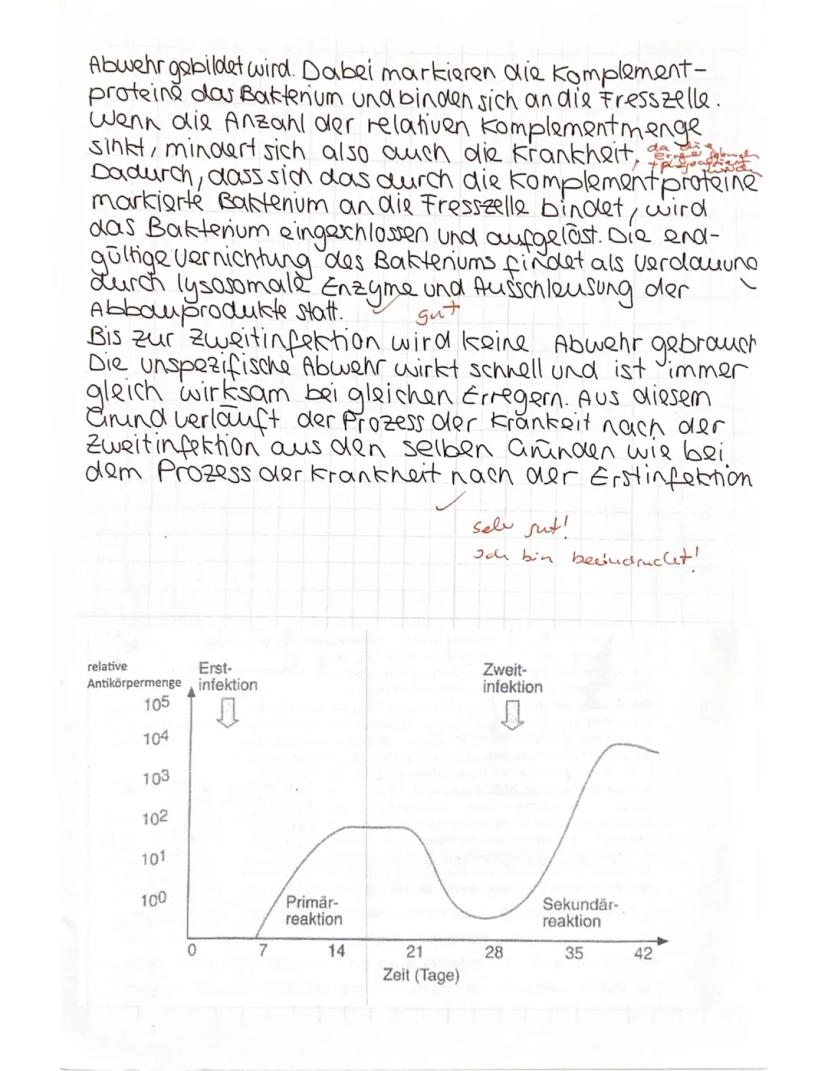 Abwehr gebildet wird. Dabei markieren die Komplement-
proteine das Bakterium und binden sich an die Fresszelle.
Wenn die Anzahl der relativen Komplementmenge
sinkt, mindert sich also auch die Krankheit, da die
Dadurch, dass sich das durch die Komplementproteine
markierte Bakterium an die Fresszelle bindet, wird
das Bakterium eingeschlossen und aufgelöst. Die end-
gültige Vernichtung des Bakteriums findet als Verdauung
durch lysosomale Enzyme und Ausschleusung der
Abbauprodukte statt. gut
Bis zur Zweitinfektion wird keine Abwehr gebrauch
Die unspezifische Abwehr wirkt schnell und ist immer
gleich wirksam bei gleichen Erregern. Aus diesem
Grund verläuft der Prozess der Krankeit nach der
Zweitinfektion aus den selben Gründen wie bei
dem Prozess der Krankheit nach der Erstinfektion
sehr gut!
Ich bin beeindruckt!
relative
Antikörpermenge
Erst-
infektion
Zweit-
infektion
10⁵
10⁴
10³
10²
10¹
10⁰
Primär-
reaktion
Sekundär-
reaktion
0 7 14 21 28 35 42
Zeit (Tage)